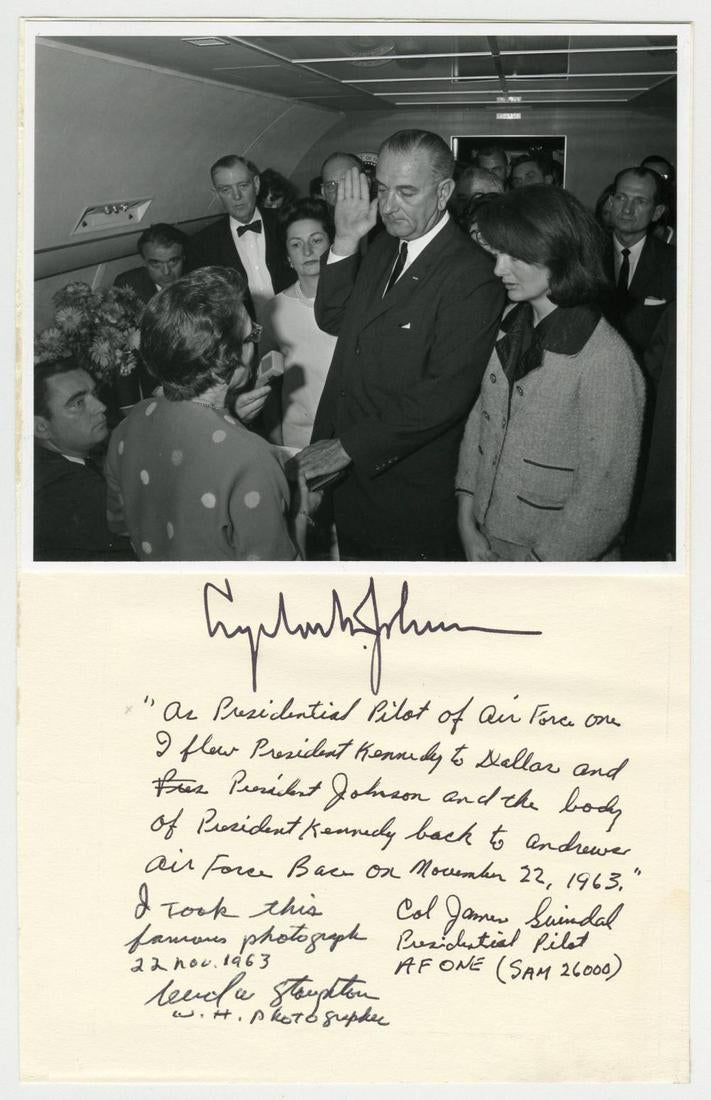 Lyndon B. Johnson
" As Presidential Pilot of Air Force One
I flew President Kennedy to Dallas and
Pres President Johnson and the body
of President Kennedy back to Andrews
Air Force Base on November 22, 1963."
I took this
famous photograph
22 Nov. 1963
Cecil W. Stoughton
W. H. Photographer
Col James Swindal
Presidential Pilot
AF ONE (SAM 26000)